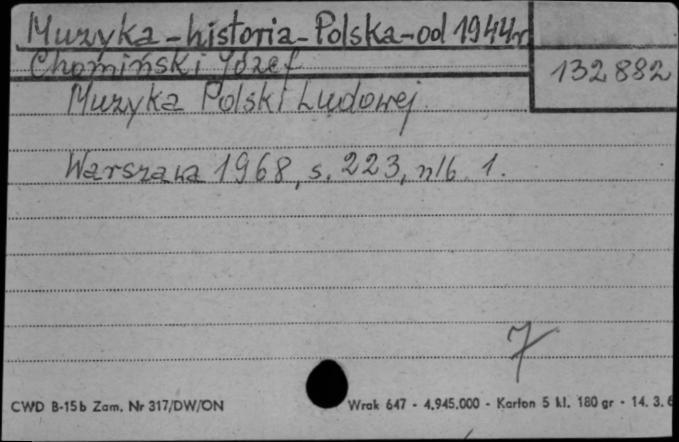 Muzyka-historia-Polska-od 1944r
Chomiński Józef
132882
Muzyka Polski Ludowej.
Warszawa 1968, s. 223, nlb 1.
7
CWD B-15b Zam. Nr 317/DW/ON
Wrak 647 - 4.945.000 - Karton 5 kl. 180 gr - 14. 3. 6